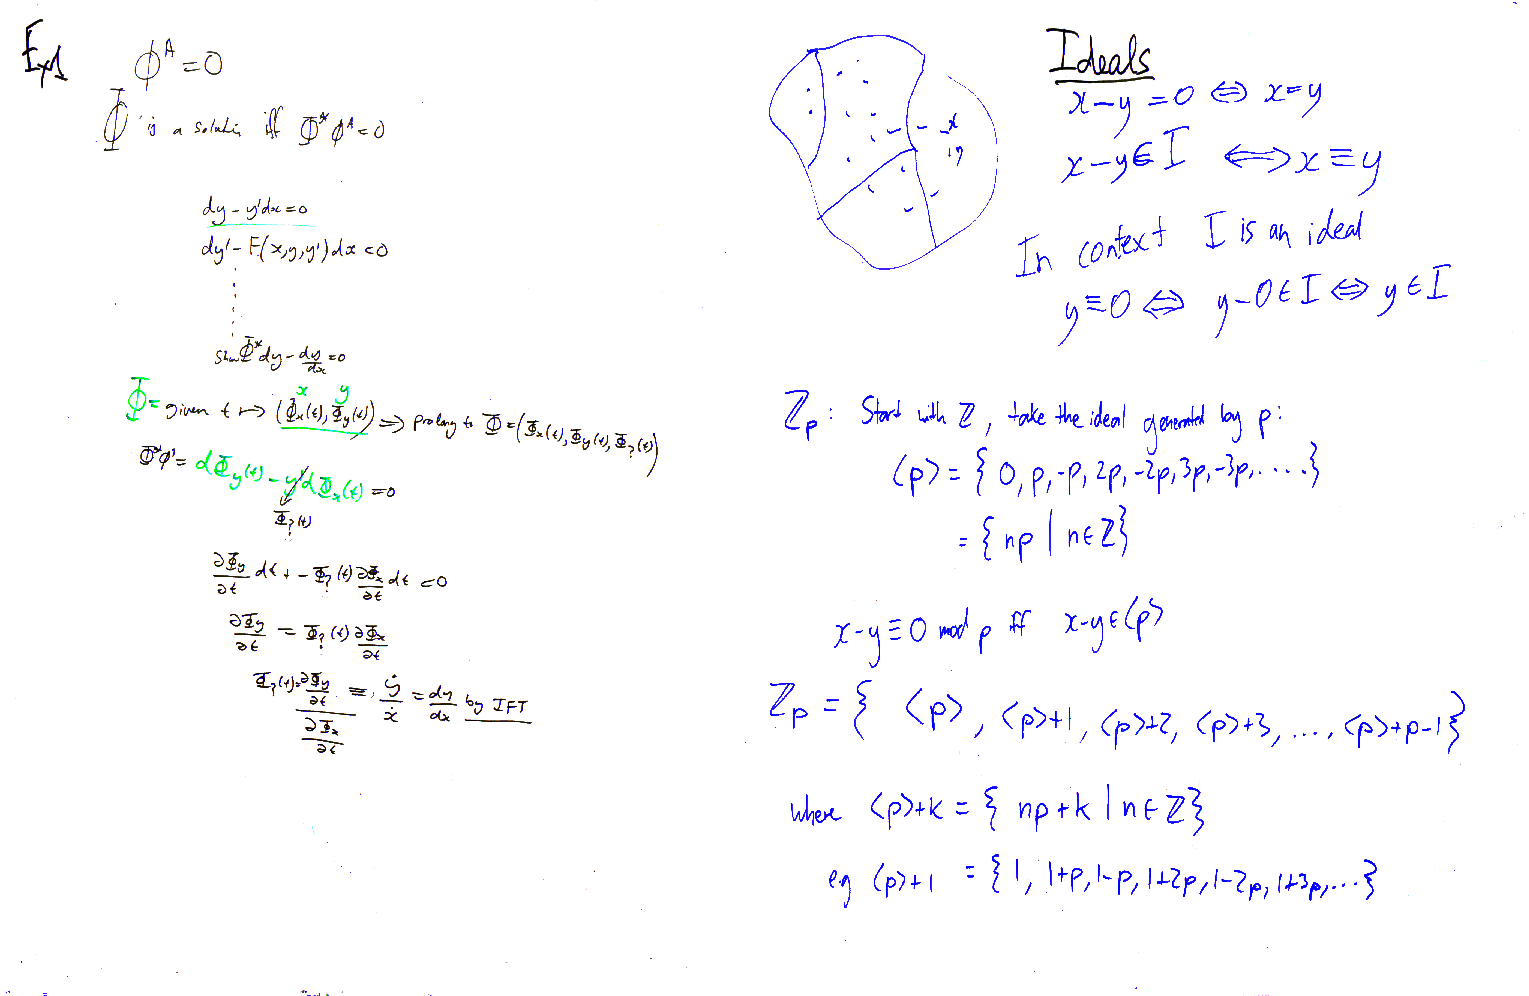 Ex1
ϕ^A = 0
Φ is a solution iff Φ*ϕ^A = 0
dy - y'dx = 0
dy' - F(x,y,y')dx = 0
Show Φ* dy - dy/dx = 0
x y
Φ = given t ↦ (Φ_x(t), Φ_y(t)) ⇒ prolong to Φ = (Φ_x(t), Φ_y(t), Φ_?(t))
Φ*ϕ' = dΦ_y(t) - y'dΦ_x(t) = 0
Φ_?(t)
∂Φ_y/∂t dt + - Φ_?(t) ∂Φ_x/∂t dt = 0
∂Φ_y/∂t = Φ_?(t) ∂Φ_x/∂t
Φ_?(t) = ∂Φ_y/∂t / ∂Φ_x/∂t = ẏ/ẋ = dy/dx by IFT
x
y
Ideals
x-y = 0 ⇔ x=y
x-y ∈ I ⇔ x ≡ y
In context I is an ideal
y ≡ 0 ⇔ y-0 ∈ I ⇔ y ∈ I
ℤ_p : Start with ℤ, take the ideal generated by p:
⟨p⟩ = { 0, p, -p, 2p, -2p, 3p, -3p, .... }
= { np | n ∈ ℤ }
x-y ≡ 0 mod p iff x-y ∈ ⟨p⟩
ℤ_p = { ⟨p⟩, ⟨p⟩+1, ⟨p⟩+2, ⟨p⟩+3, ..., ⟨p⟩+p-1 }
where ⟨p⟩+k = { np+k | n ∈ ℤ }
eg ⟨p⟩+1 = { 1, 1+p, 1-p, 1+2p, 1-2p, 1+3p, ... }